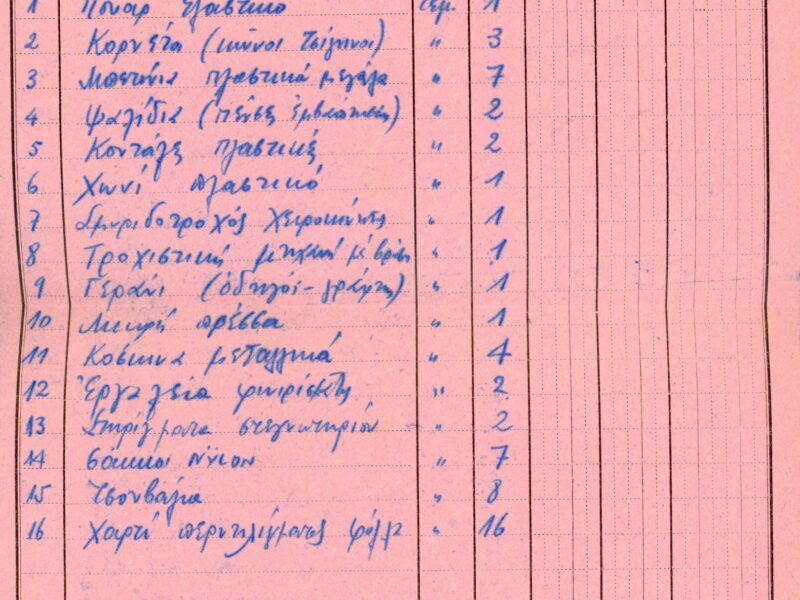 1 Πουάρ ἐλαστικό τεμ. 1
2 Κορνέτα (κῶνοι τσίγκινοι) " 3
3 Μπετόνια πλαστικά μεγάλα " 7
4 Ψαλίδια (πένσες " 2
5 Κουτάλες πλαστικές " 2
6 Χωνί πλαστικό " 1
7 Σμυριδοτροχός χειροκίνητος " 1
8 Τροχιστική μηχανή μέ βάση " 1
9 Γεράνι (ὁδηγός - γράφτης) " 1
10 Μικρή πρέσσα " 1
11 Κόσκινα μεταλλικά " 4
12 Ἐργαλεῖα " 2
13 Στηρίγματα στεγνωτηρίου - " 2
14 σάκκοι νύλον " 7
15 Τσουβάλια " 8
16 Χαρτί περιτυλίγματος φύλλα " 16